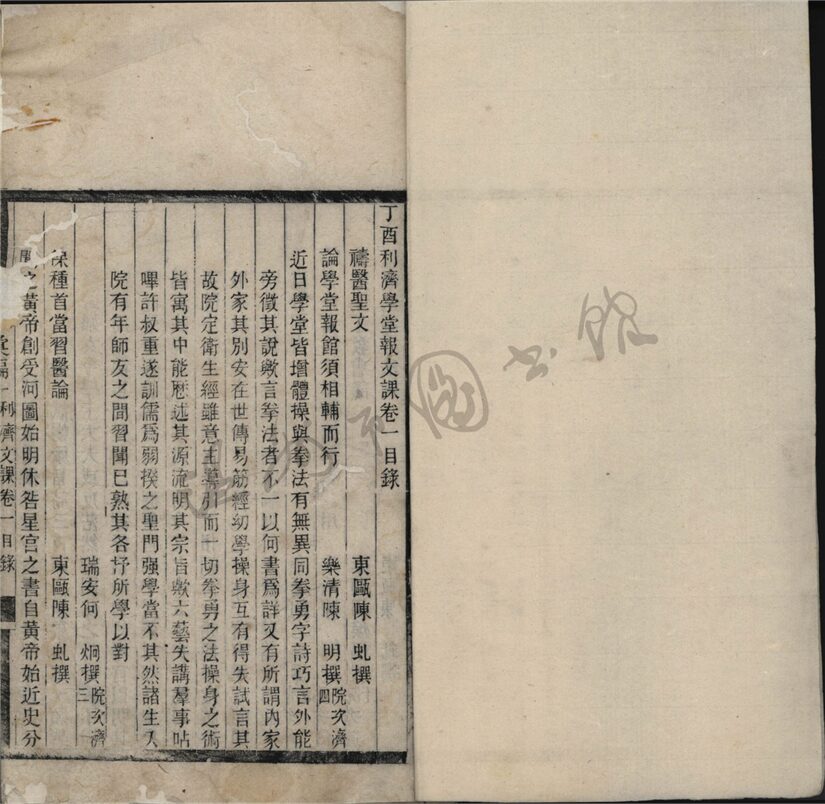 丁酉利濟學堂報文課卷一目錄
禱醫聖文 東甌陳 虬撰
論學堂報館須相輔而行 樂清陳 明撰 院次濟四
近日學堂皆增體操與拳法有無異同拳勇字詩巧言外能
旁徵其說歟言拳法者不一以何書為詳又有所謂內家
外家其別安在世傳易筋經幼學操身互有得失試言其
故院定衛生經雖意主導引而一切拳勇之法操身之術
皆寓其中能歷述其源流明其宗旨歟六藝失講羣事呫
嗶許叔重遂訓儒為弱揆之聖門强學當不其然諸生入
院有年師友之間習聞已熟其各抒所學以對
瑞安何 炯撰 院次濟三
保種首當習醫論 東甌陳 虬撰
之黃帝創受河圖始明休咎星官之書自黃帝始近史分
彙編一 利濟文課卷一目錄
圖書館